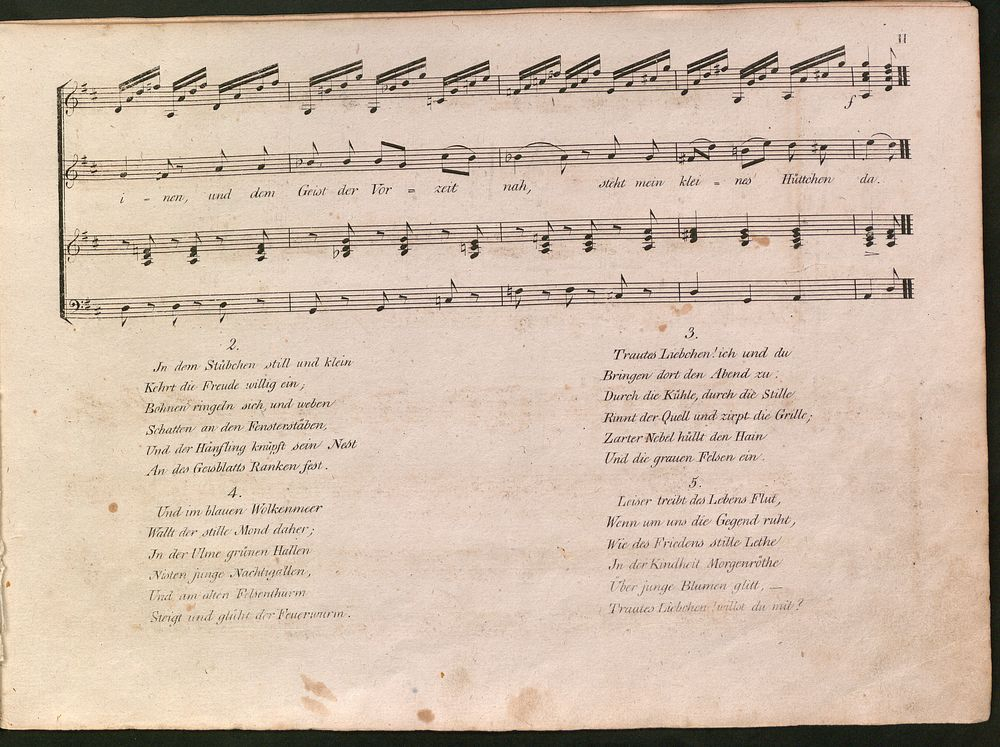 11
i = nen, und dem Geist der Vor = zeit nah, steht mein klei = nes Hüttchen da.
f
2.
In dem Stübchen still und klein
Kehrt die Freude willig ein;
Bohnen ringeln sich, und weben
Schatten an den Fensterstäben,
Und der Hänfling knüpft sein Nest
An des Geisblatts Ranken fest.
4.
Und im blauen Wolkenmeer
Wallt der stille Mond daher;
In der Ulme grünen Hallen
Nisten junge Nachtigallen,
Und am alten Felsenthurm
Steigt und glüht der Feuerwurm.
3.
Trautes Liebchen! ich und du
Bringen dort den Abend zu:
Durch die Kühle, durch die Stille
Rinnt der Quell und zirpt die Grille;
Zarter Nebel hüllt den Hain
Und die grauen Felsen ein.
5.
Leiser treibt des Lebens Flut,
Wenn um uns die Gegend ruht,
Wie des Friedens stille Lethe
In der Kindheit Morgenröthe
Über junge Blumen glitt, —
Trautes Liebchen! willst du mit?